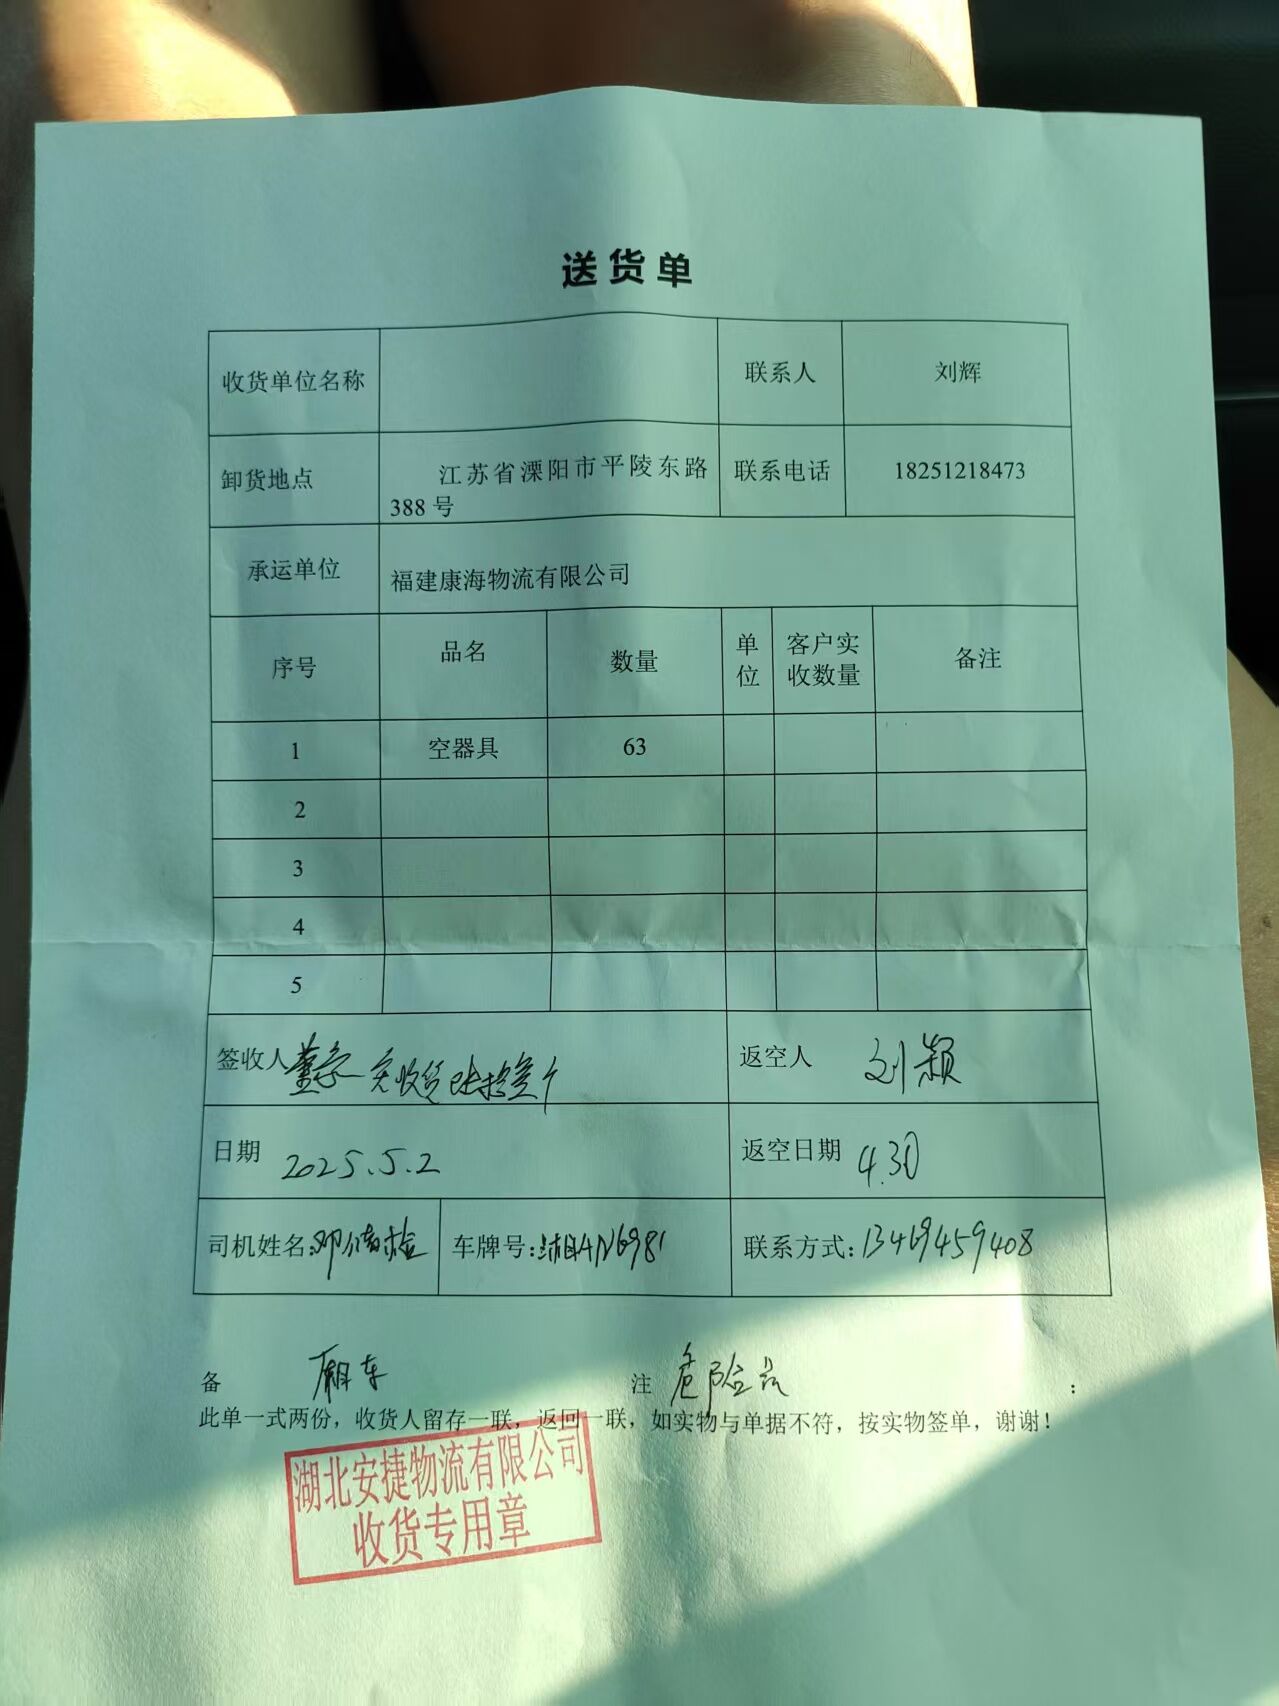 送货单
收货单位名称 联系人 刘辉
卸货地点 江苏省溧阳市平陵东路 联系电话 18251218473
388号
承运单位 福建康海物流有限公司
序号 品名 数量 单位 客户实收数量 备注
1 空器具 63
2
3
4
5
签收人 实收货 返空人 刘颖
日期 2025.5.2 返空日期 4.30
司机姓名: 车牌号: AN6981 联系方式: 13469459408
备 厢车 注 危险 :
此单一式两份，收货人留存一联，返回一联，如实物与单据不符，按实物签单，谢谢！
湖北安捷物流有限公司
收货专用章